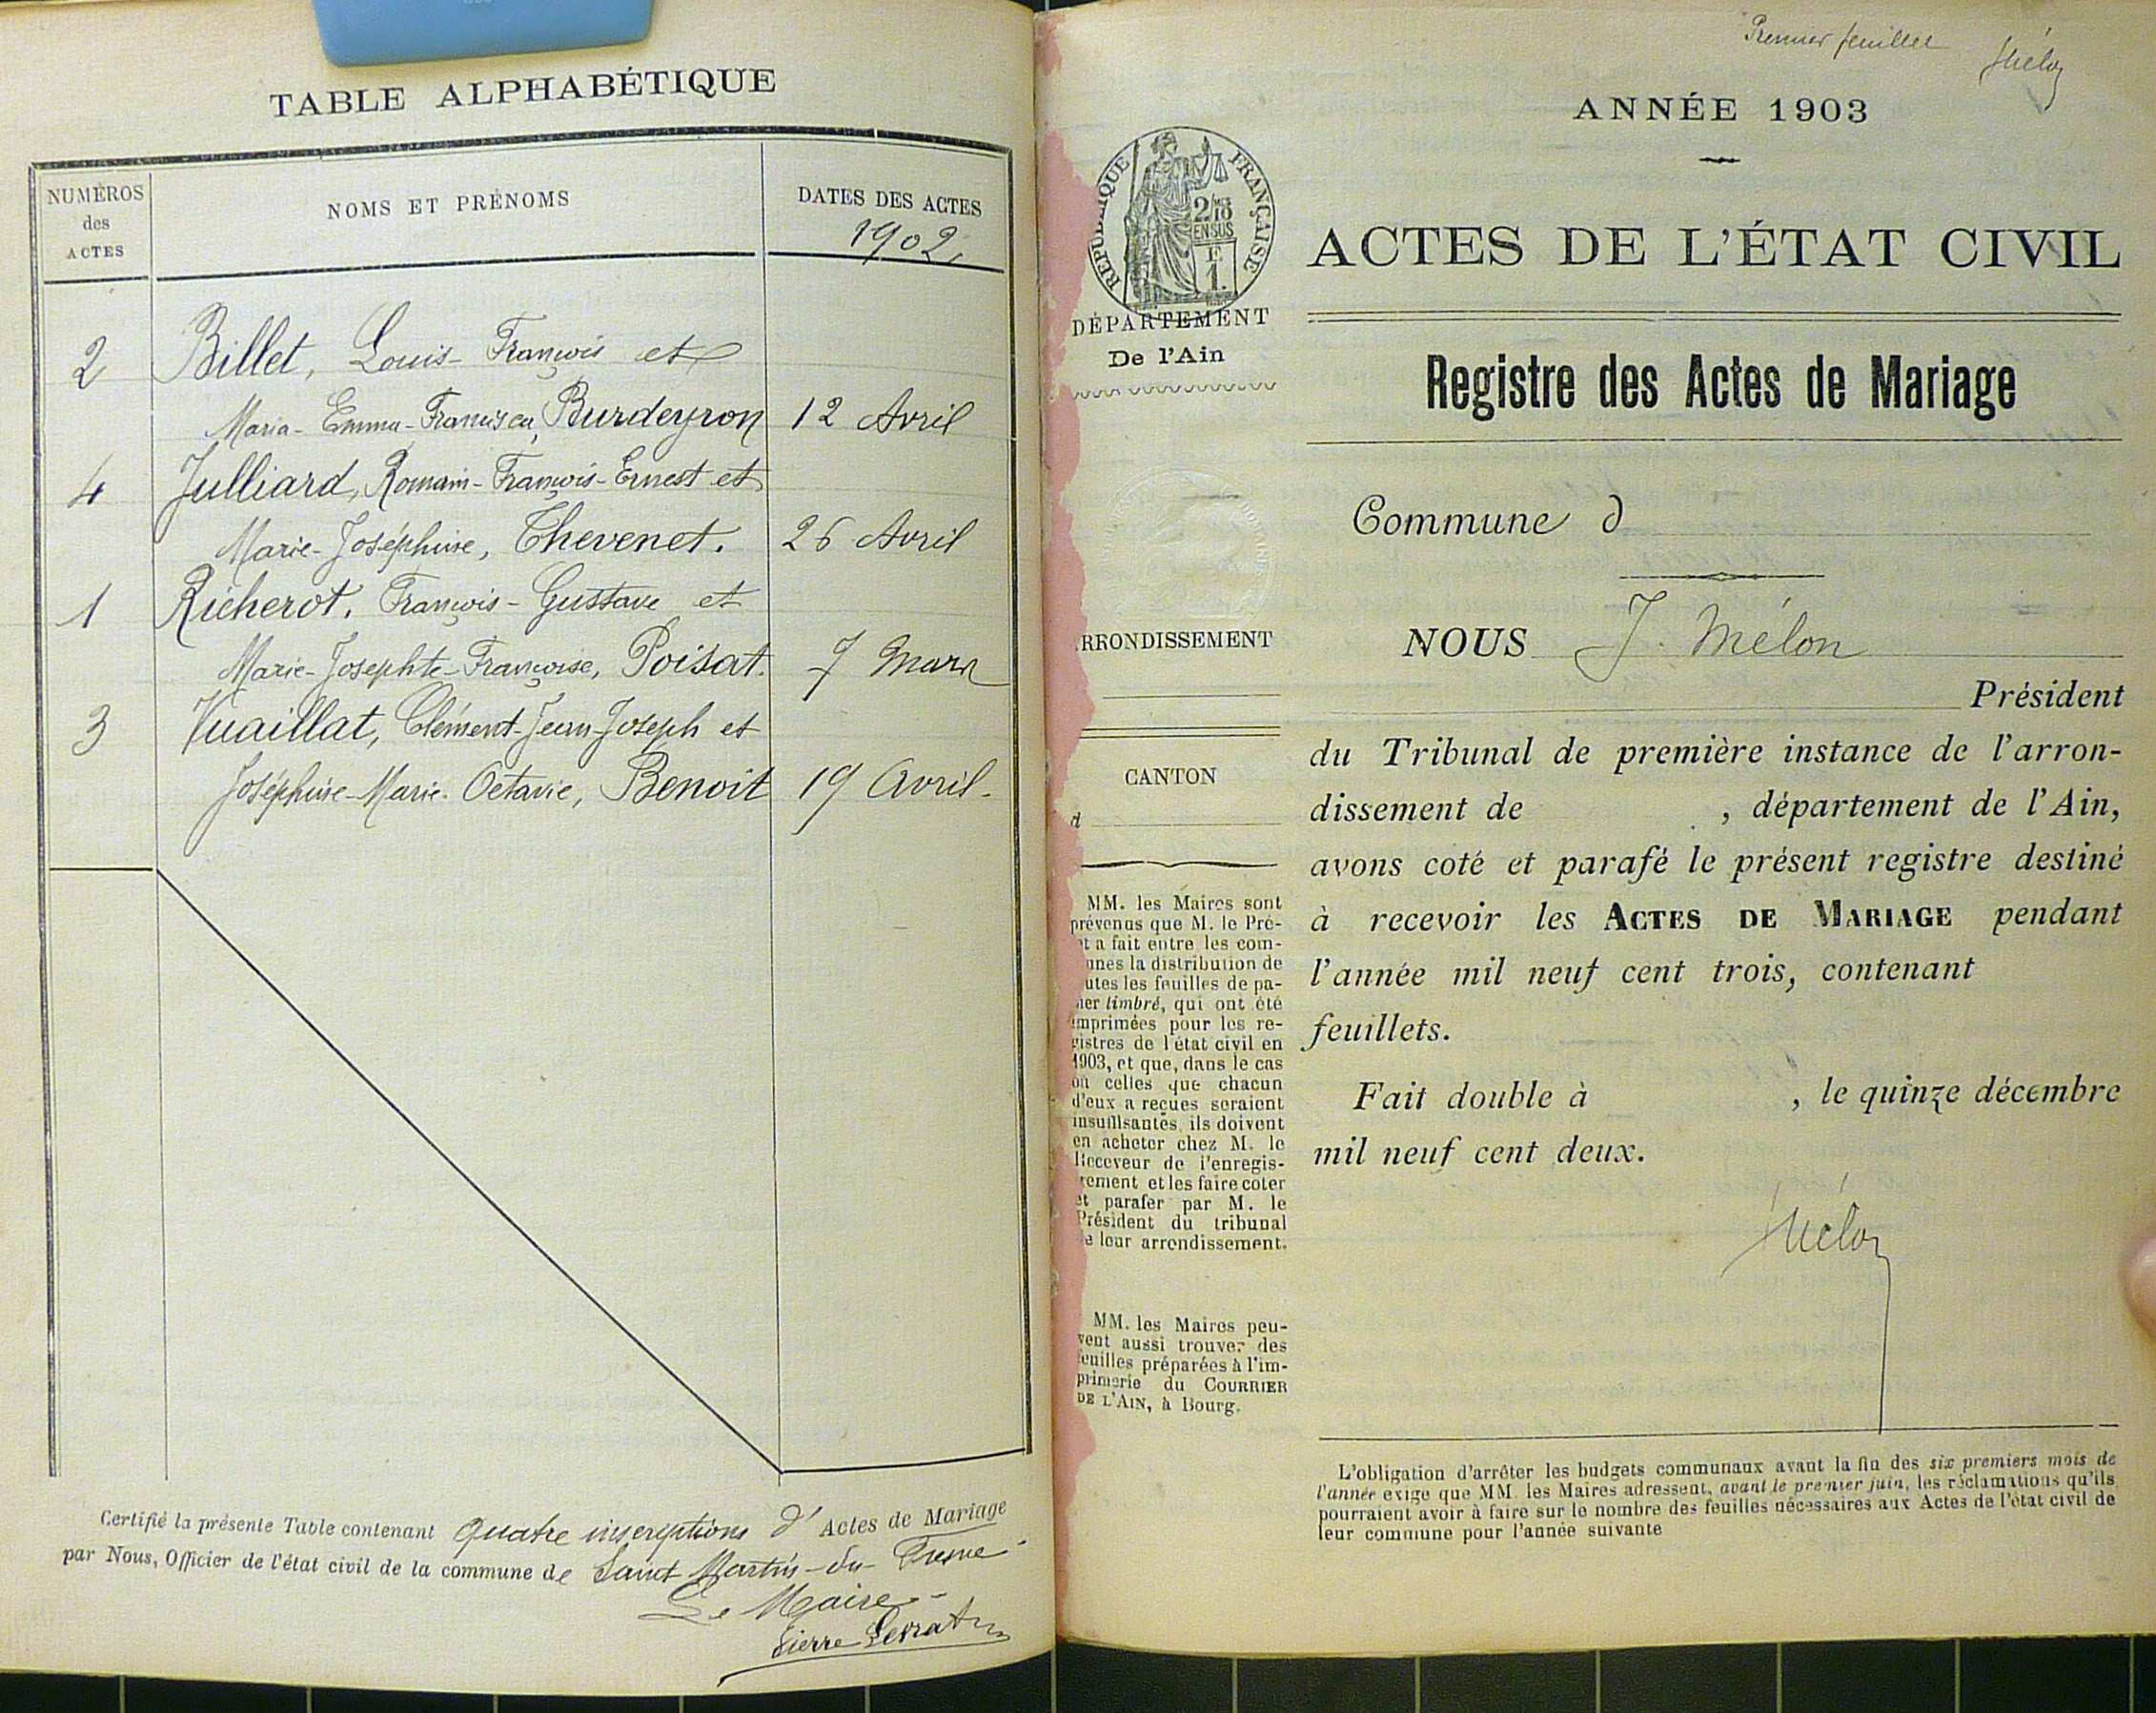 TABLE ALPHABÉTIQUE
NUMÉROS
des
ACTES
NOMS ET PRÉNOMS
DATES DES ACTES
1902
2 Billet, Louis-François et
Maria-Emma-Francisca, Burdeyron 12 Avril
4 Julliard, Romain-François-Ernest et
Marie-Joséphine, Thevenet. 26 Avril
1 Richerot, François-Gustave et
Marie-Josephte-Françoise, Poisat. 7 Mars
3 Vuaillat, Clément-Jean-Joseph et
Joséphine-Marie-Octavie, Benoit 19 Avril.
Certifié la présente Table contenant quatre inscriptions d'Actes de Mariage
par Nous, Officier de l'état civil de la commune de Saint Martin-du-Fresne
Le Maire
Pierre
Premier feuillet Mélon
ANNÉE 1903
RÉPUBLIQUE FRANÇAISE
2/10
EN SUS
F.
1.
DÉPARTEMENT
De l'Ain
RRONDISSEMENT
CANTON
d
MM. les Maires sont
prévenus que M. le Pré-
et a fait entre les com-
unes la distribution de
utes les feuilles de pa-
ier timbré, qui ont été
imprimées pour les re-
gistres de l'état civil en
1903, et que, dans le cas
où celles que chacun
d'eux a reçues seraient
insuffisantes, ils doivent
en acheter chez M. le
Receveur de l'enregis-
rement et les faire coter
et parafer par M. le
Président du tribunal
e leur arrondissement.
MM. les Maires peu-
vent aussi trouver des
feuilles préparées à l'im-
primerie du COURRIER
DE L'AIN, à Bourg.
ACTES DE L'ÉTAT CIVIL
Registre des Actes de Mariage
Commune d
NOUS J. Mélon
Président
du Tribunal de première instance de l'arron-
dissement de , département de l'Ain,
avons coté et parafé le présent registre destiné
à recevoir les ACTES DE MARIAGE pendant
l'année mil neuf cent trois, contenant
feuillets.
Fait double à , le quinze décembre
mil neuf cent deux.
Mélon
L'obligation d'arrêter les budgets communaux avant la fin des six premiers mois de
l'année exige que MM. les Maires adressent, avant le premier juin, les réclamations qu'ils
pourraient avoir à faire sur le nombre des feuilles nécessaires aux Actes de l'état civil de
leur commune pour l'année suivante